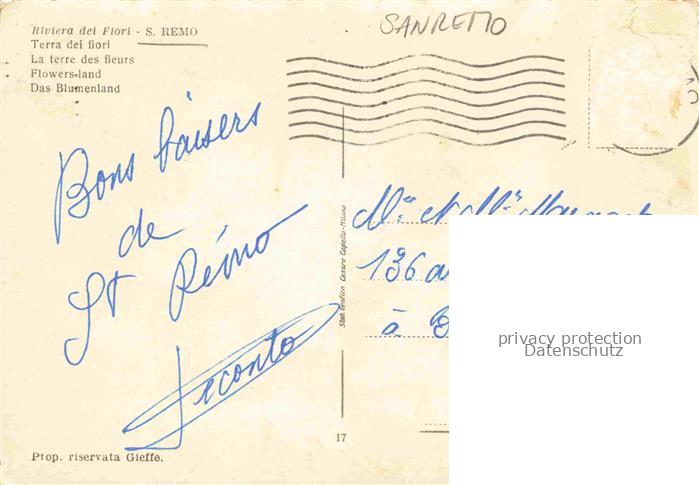 SANREMO
Riviera dei Fiori - S. REMO
Terra dei fiori
La terre des fleurs
Flowers-land
Das Blumenland
Bons baisers
de
St Rémo
Leconto
Stab. Grafico Cesare Capello - Milano
Mr et Mme
136 a
à
17
Prop. riservata Gieffe.
privacy protection
Datenschutz